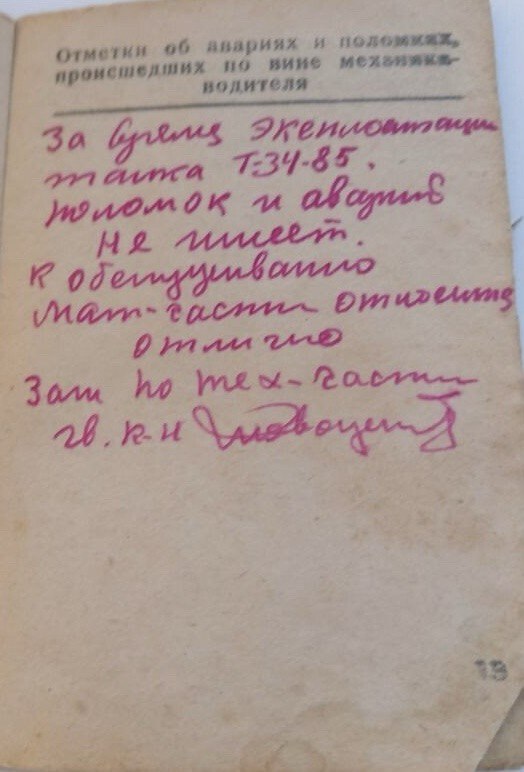 Отметки об авариях и поломках,
происшедших по вине механика-
водителя
За время эксплоатации
танка Т-34-85.
поломок и аварий
не имеет.
К обслуживанию
мат-части относится
отлично
Зам по тех-части
гв. к-н
13